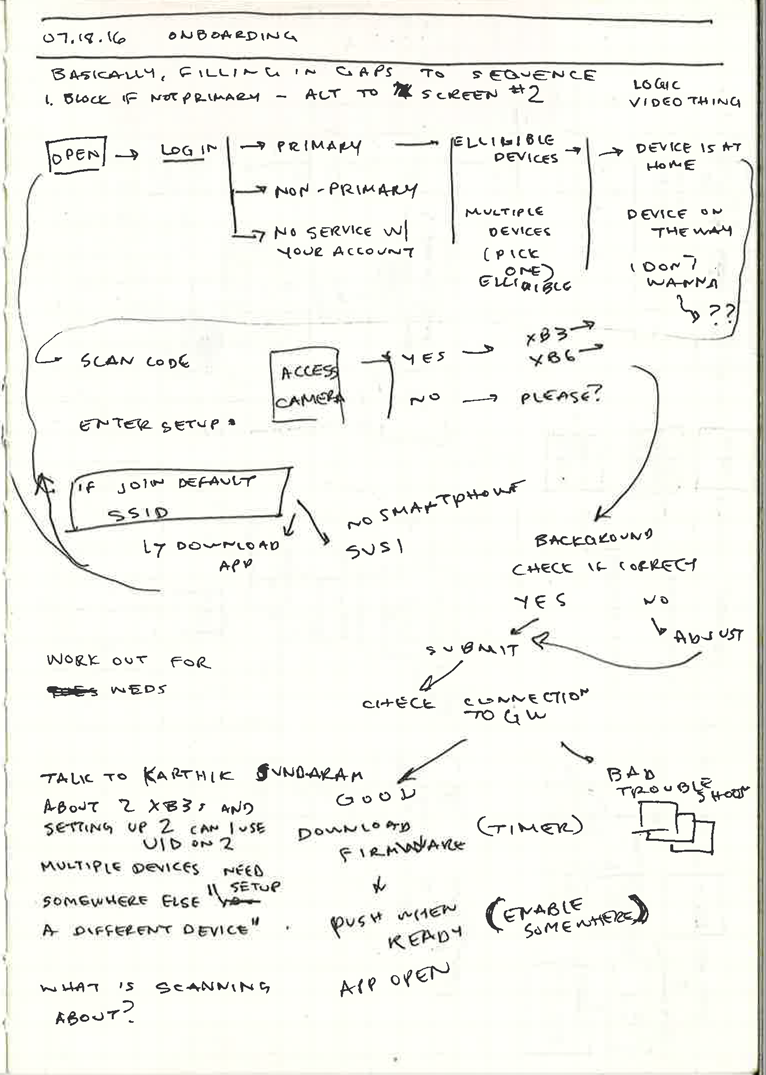 07.18.16 ONBOARDING
BASICALLY, FILLING IN GAPS TO SEQUENCE
1. BLOCK IF NOT PRIMARY – ALT TO SCREEN #2
LOGIC
VIDEO THING
OPEN → LOG IN → PRIMARY → ELLIGIBLE
DEVICES → → DEVICE IS AT
HOME
→ NON-PRIMARY
→ NO SERVICE W/
YOUR ACCOUNT
MULTIPLE
DEVICES
(PICK
ONE)
ELLIGIBLE
DEVICE ON
THE WAY
I DON'T
WANNA
↳ ??
SCAN CODE
ACCESS
CAMERA
→ YES → XB3 →
XB6 →
NO → PLEASE?
ENTER SETUP •
IF JOIN DEFAULT
SSID
↳ DOWNLOAD
APP
NO SMARTPHONE
SUSI
BACKGROUND
CHECK IF CORRECT
YES NO
↳ ADJUST
SUBMIT
WORK OUT FOR
WEDS
CHECK CONNECTION
TO GW
TALK TO KARTHIK SUNDARAM
ABOUT 2 XB3s AND
SETTING UP 2 CAN I USE
UID ON 2
MULTIPLE DEVICES NEED
SOMEWHERE ELSE "SETUP
A DIFFERENT DEVICE".
WHAT IS SCANNING
ABOUT?
GOOD
DOWNLOAD
FIRMWARE (TIMER)
↓
PUSH WHEN
READY (ENABLE
SOMEWHERE)
APP OPEN
BAD
TROUBLE
SHOOT